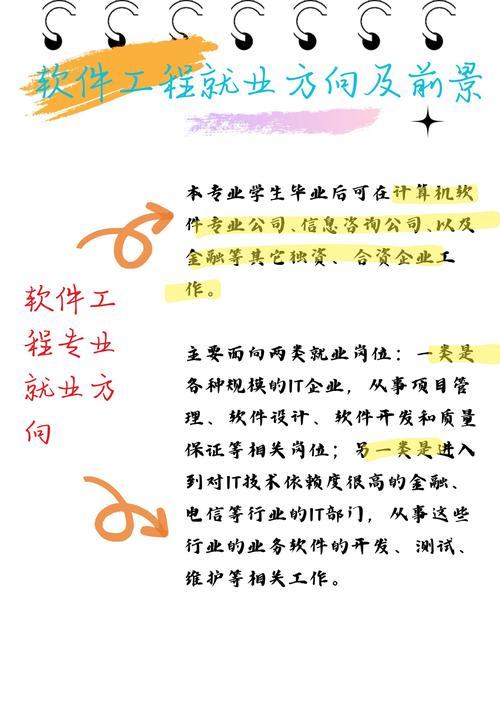 软件工程就业方向及前景
本专业学生毕业后可在计算机软
件专业公司、信息咨询公司、以及
金融等其它独资、合资企业工
作。
软件工
程专业
就业方
向
主要面向两类就业岗位：一类是
各种规模的IT企业，从事项目管
理、软件设计、软件开发和质量
保证等相关岗位；另一类是进入
到对IT技术依赖度很高的金融、
电信等行业的IT部门，从事这些
行业的业务软件的开发、测试、
维护等相关工作。